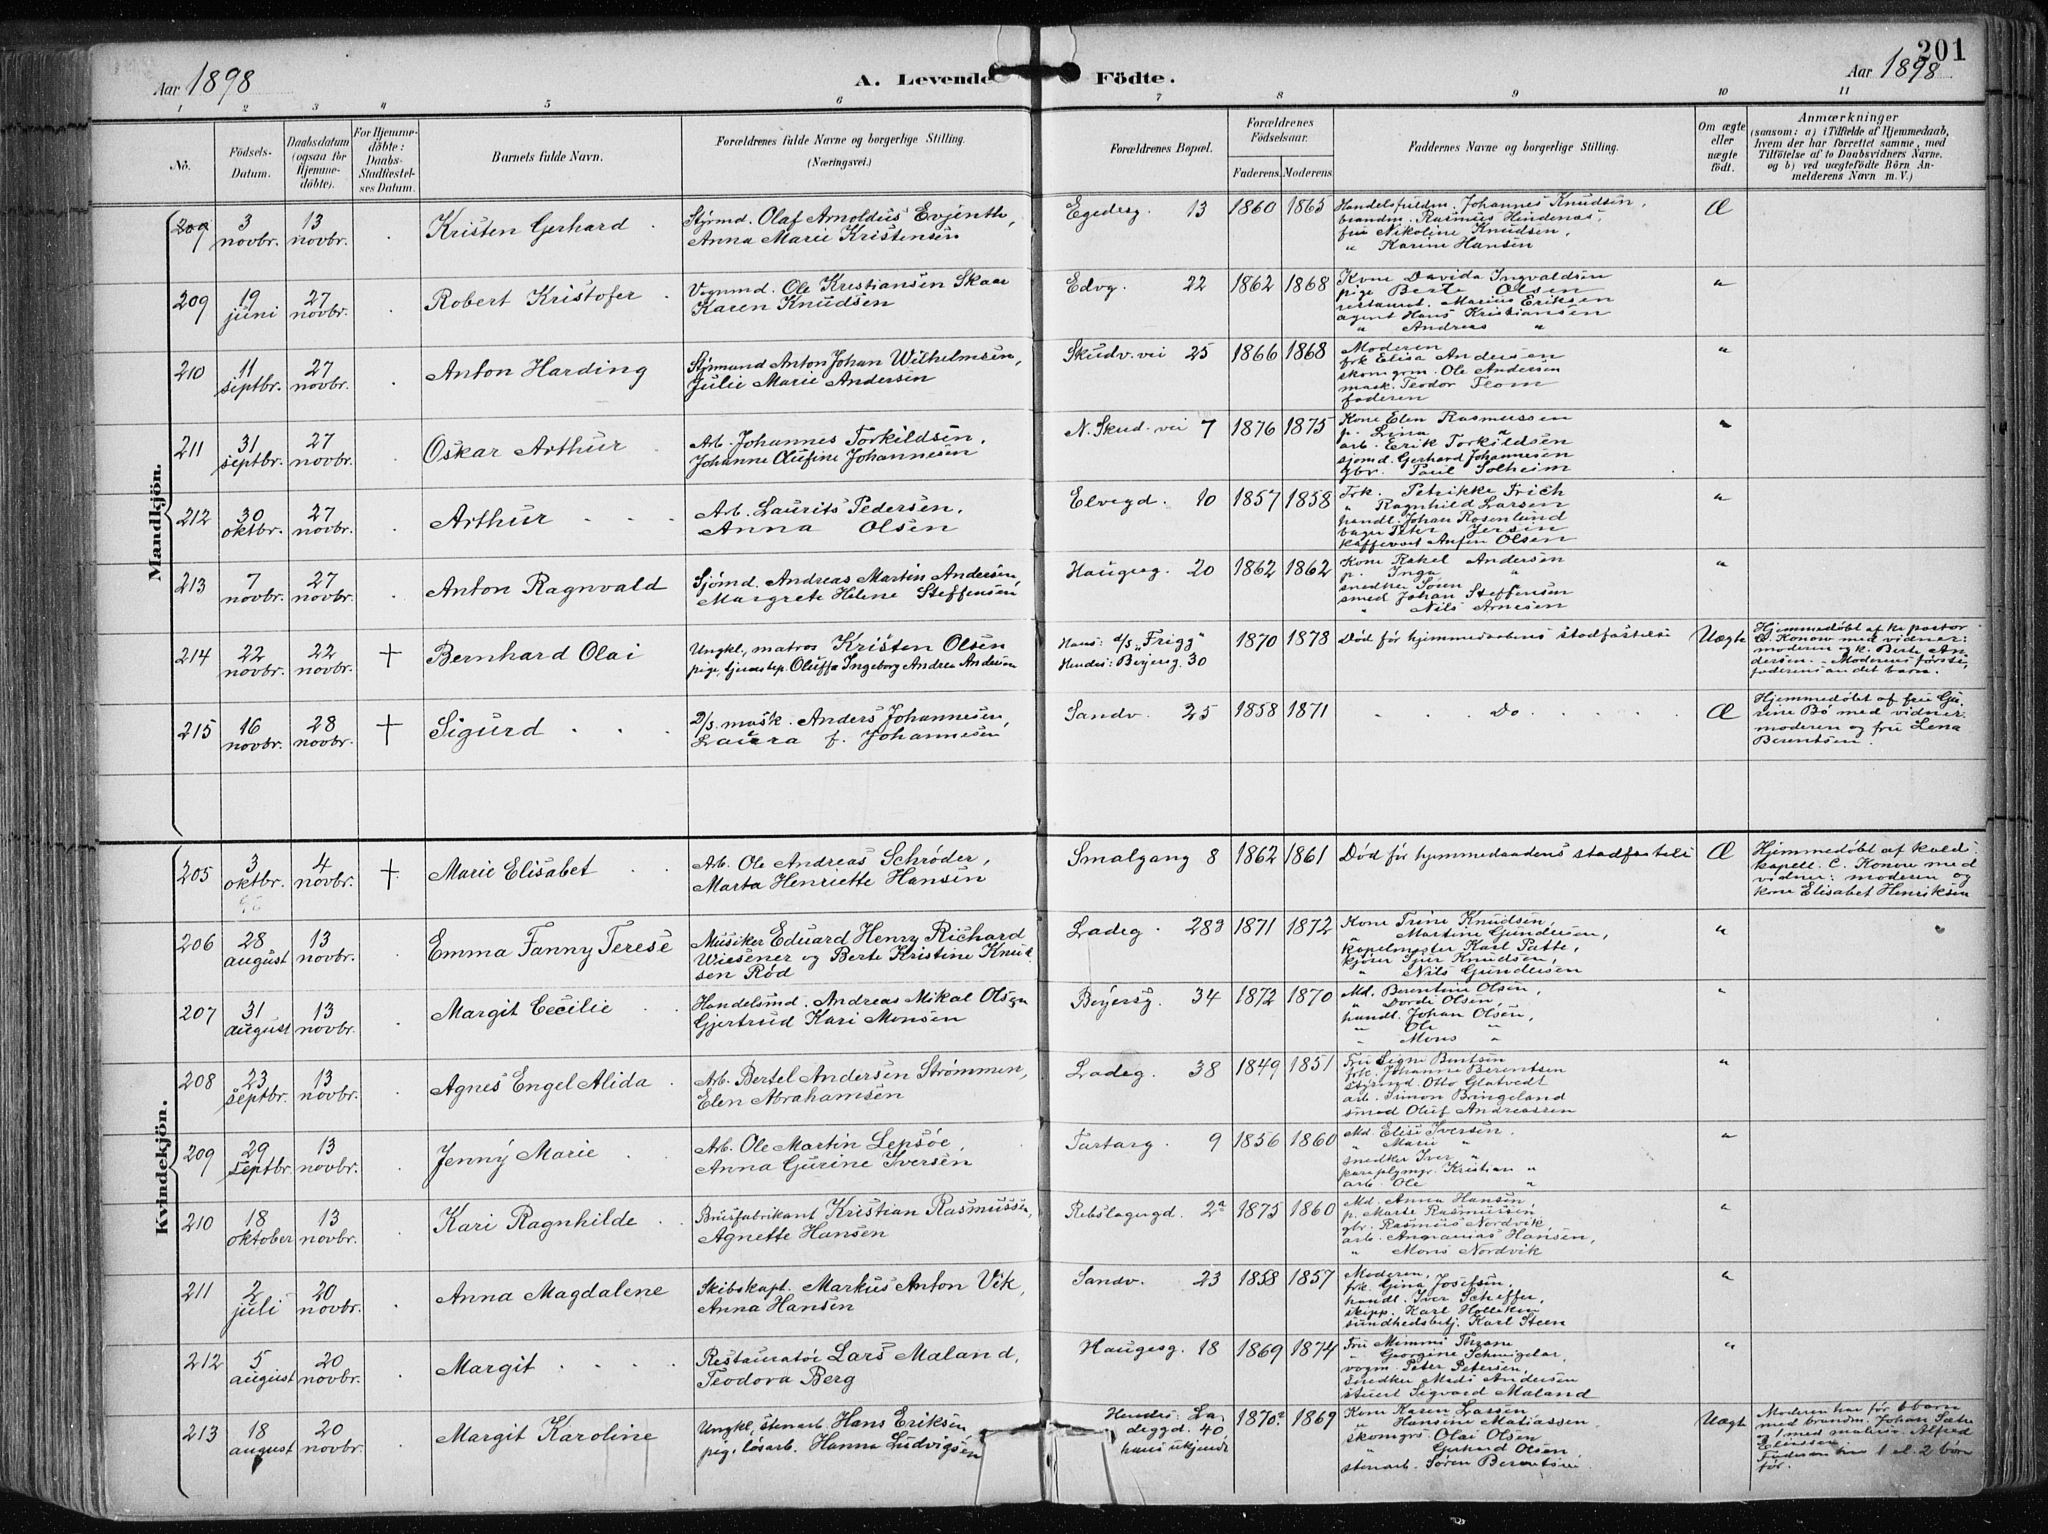 201
Aar 1898
A. Levende Födte.
Aar 1898
1 2 3 4 5 6 7 8 9 10 11
No.
Födsels-
Datum.
Daabsdatum
(ogsaa for
Hjemme-
döbte).
For Hjemme-
döbte:
Daabs-
Stadfæstel-
ses Datum.
Barnets fulde Navn.
Forældrenes fulde Navne og borgerlige Stilling.
(Næringsvei.)
Forældrenes Bopæl.
Forældrenes
Födselsaar.
Faderens. Moderens
Faddernes Navne og borgerlige Stilling.
Om ægte
eller
uægte
födt.
Anmærkninger
(saasom: a) i Tilfælde af Hjemmedaab,
hvem der har forrettet samme, med
Tilföielse af to Daabsvidners Navne,
og b) ved uægtefödte Börn An-
melderens Navn m. V.)
Mandkjön.
209
3
novbr.
13
novbr.
Kristen Gerhard
Styrmd. Olaf Arnoldus Evjenth,
Anna Marie Kristensen
Egedesg. 13
1860 1865
Johannes Knudsen,
brandm. Rasmus
fru Nikoline Knudsen,
" Karine Hansen
Æ
209
19
juni
27
novbr.
Robert Kristofer
Vognmd. Ole Kristiansen Skaar
Karen Knudsen
Edvg. 22
1862 1868
Kone Davida Ingvaldsen
pige Berte Olsen
restaurat. Marius Eriksen
agent Hans Kristiansen
" Andreas "
"
210
11
septbr.
27
novbr.
Anton Harding
Styrmand Anton Johan Wilhelmsen,
Julie Marie Andersen
Skudv. vei 25
1866 1868
Moderen
frk Elisa Andersen
skomgrm. Ole Andersen
mask. Teodor Flom
faderen
"
211
31
septbr.
27
novbr.
Oskar Arthur
Arb. Johannes Torkildsen,
Johanne Olufine Johannesen
N. Skud. vei 7
1876 1875
Kone Elen Rasmussen
p. Lina "
arb. Erik Torkildsen
sjømd. Gerhard Johannesen
gbr. Paul Solheim
"
212
30
oktbr.
27
novbr.
Arthur
Arb. Laurits Pedersen,
Anna Olsen
Elvegd. 10
1857 1858
Frk. Petrikke Irich
" Ragnhild Larsen
handl. Johan Rosenlund
bager Peter Jersin
Olsen
"
213
7
novbr.
27
novbr.
Anton Ragnvald
Sjømd. Andreas Martin Andersen,
Margrete Helene Steffensen
Haugesg. 20
1862 1862
Kone Rakel Andersen
p. Inga "
snedker Søren "
smed Johan Steffensen
" Nils Arnesen
"
214
22
novbr.
22
novbr.
†
Bernhard Olai
Ungkl, matros Kristen Olsen
pige, tjenstep. Oluffa Ingeborg Andrea Andersen
Hans: d/s. "Frigg"
Hendes: Beyersg. 30
1870 1878
Død før hjemmedaabens stadfæstelse
Uægte
Hjemmedøbt af
C. Konow med vidner:
moderen og k. Berte An-
dersen. - Moderens første,
faderens andet barn.
215
16
novbr.
28
novbr.
†
Sigurd
D/s. mask. Anders Johannesen,
Laura f. Johannesen
Sandv. 25
1858 1871
Do
Æ
Hjemmedøbt af fru Gu-
rine Bö med vidner:
moderen og fru Lena
Berentsen.
Kvindekjön.
205
3
oktbr.
4
novbr.
†
Marie Elisabet
Arb. Ole Andreas Schrøder,
Marta Henriette Hansen
Smalgang 8
1862 1861
Død før hjemmedaabens stadfæstelse
Æ
Hjemmedøbt af kald.
kapell. C. Konow med
vidner: moderen og
kone Elisabet Henriksen
206
28
august
13
novbr.
Emma Fanny Terese
Musiker Eduard Henry Richard
Wiesener og Berte Kristine Knud-
sen Rød
Ladeg. 28a
1871 1872
Kone Trine Knudsen,
" Martine Gundersen,
kapelmester Karl Patte,
kjører Sjur Knudsen,
" Nils Gundersen
"
"
207
31
august
13
novbr.
Margit Cecilie
Handelsmd. Andreas Mikal Olsen
Gjertrud Kari Monsen
Beyersg. 34
1872 1870
Md. Berentine Olsen,
" Dordi Olsen,
handl. Johan Olsen,
" Ole "
" Mons "
"
208
23
septbr.
13
novbr.
Agnes Engel Alida
Arb. Bertel Andersen Strømmen,
Elen Abrahamsen
Ladeg. 38
1849 1851
Fru Signe Bentsen
frk. Johanne Berentsen
styrmd. Otto Glatvedt
arb. Simon Bringeland
smed Oluf Andreassen
"
209
29
septbr.
13
novbr.
Jenny Marie
Arb. Ole Martin Lepsøe,
Anna Gurine Iversen
Tartarg. 9
1856 1860
Md. Elise Iversen.
" Marie "
snedker Iver "
paraplymgr. Kristian "
arb. Ole "
"
210
18
oktober
13
novbr.
Kari Ragnhilde
Brusfabrikant Kristian Rasmussen,
Agnette Hansen
Rebslagergd. 2a
1875 1860
Md. Anna Hansen
p. Marte Rasmussen
gbr. Rasmus Nordvik,
arb. Hansen,
" Mons Nordvik
"
211
2
juli
20
novbr.
Anna Magdalene
Skibskapt. Markus Anton Vik,
Anna Hansen
Sandv. 23
1858 1857
Moderen,
frk. Gina Josefsen,
handl. Iver Scheffer,
skipp. Karl
sundhedsbetj. Karl Steen
"
212
5
august
20
novbr.
Margit
Restauratør Lars Maland,
Teodora Berg
Haugesg. 18
1869 1874
Fru Mimmi Thrane
" Georgine
vogm. Peter Petersen,
snedker Mads Andersen
stuert Sigvard Maland
"
213
18
august
20
novbr.
Margit Karoline
Ungkl, stenarb. Hans Eriksen
pig, løsarb. Hanna Ludvigsen
Hendes: La-
deggd. 40,
hans ukjendt
1870? 1869
Kone Karen Larsen
" Hansine Matiassen
skomgrs Olai Olsen
" Gerhard Olsen
stenarb. Søren Berentsen
Uægte
Moderen har før 1 barn
med brandm. Johan Sætre
og 1 med Alfred
Eliassen
Faderen har 1 el. 2 børn
før.